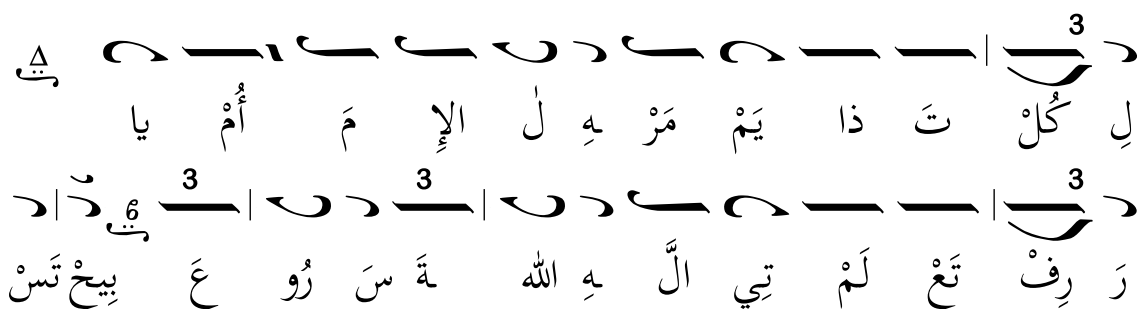 Δ 3
يا أُمْ مَ الإِ لٰ هِ مَرْ يَمْ ذا تَ كُلْ لِ
6 3 3 3
تَسْ بِيحْ عَ رُو سَ ةَ الله هِ الَّ تِي لَمْ تَعْ رِفْ رَ